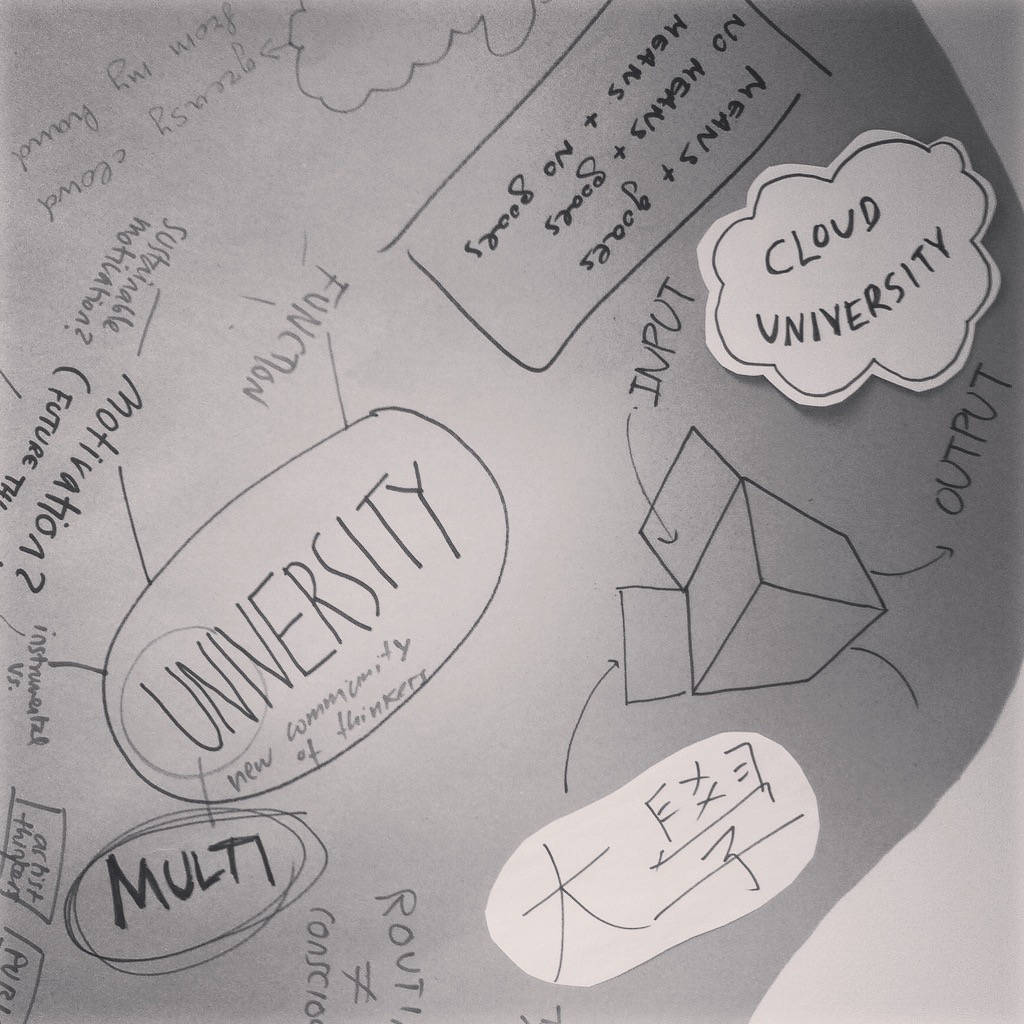 greasy cloud
from my hand
MEANS + goals
NO MEANS + goals
MEANS + NO goals
CLOUD
UNIVERSITY
INPUT
OUTPUT
FUNCTION
Sustainable
motivation?
Motivation?
(FUTURE TH
instrumental
vs.
UNIVERSITY
new community
of thinkers
MULTI
大學
ROUTI
≠
CONSCIO